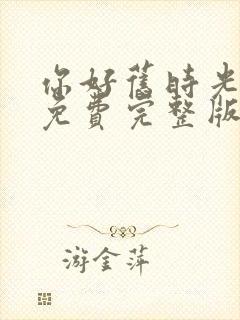 你好舊時光
免費完整版
游金萍